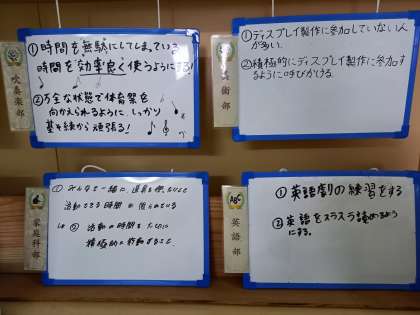 吹奏楽部
①時間を無駄にしてしまっている
時間を効率良く使うようにする!
②万全な状態で体育祭を
向かえられるように しっかり
基そ練から頑張る!
美術部
①ディスプレイ製作に参加していない人
が多い。
②積極的にディスプレイ製作に参加す
るように呼びかける。
家庭科部
①みんなで一緒に
活動できる時間が限られている
② 活動の時間を大切に
積極的に行動すること
ABC
英語部
①英語劇の練習をする
②英語をスラスラ読めるように
にする。